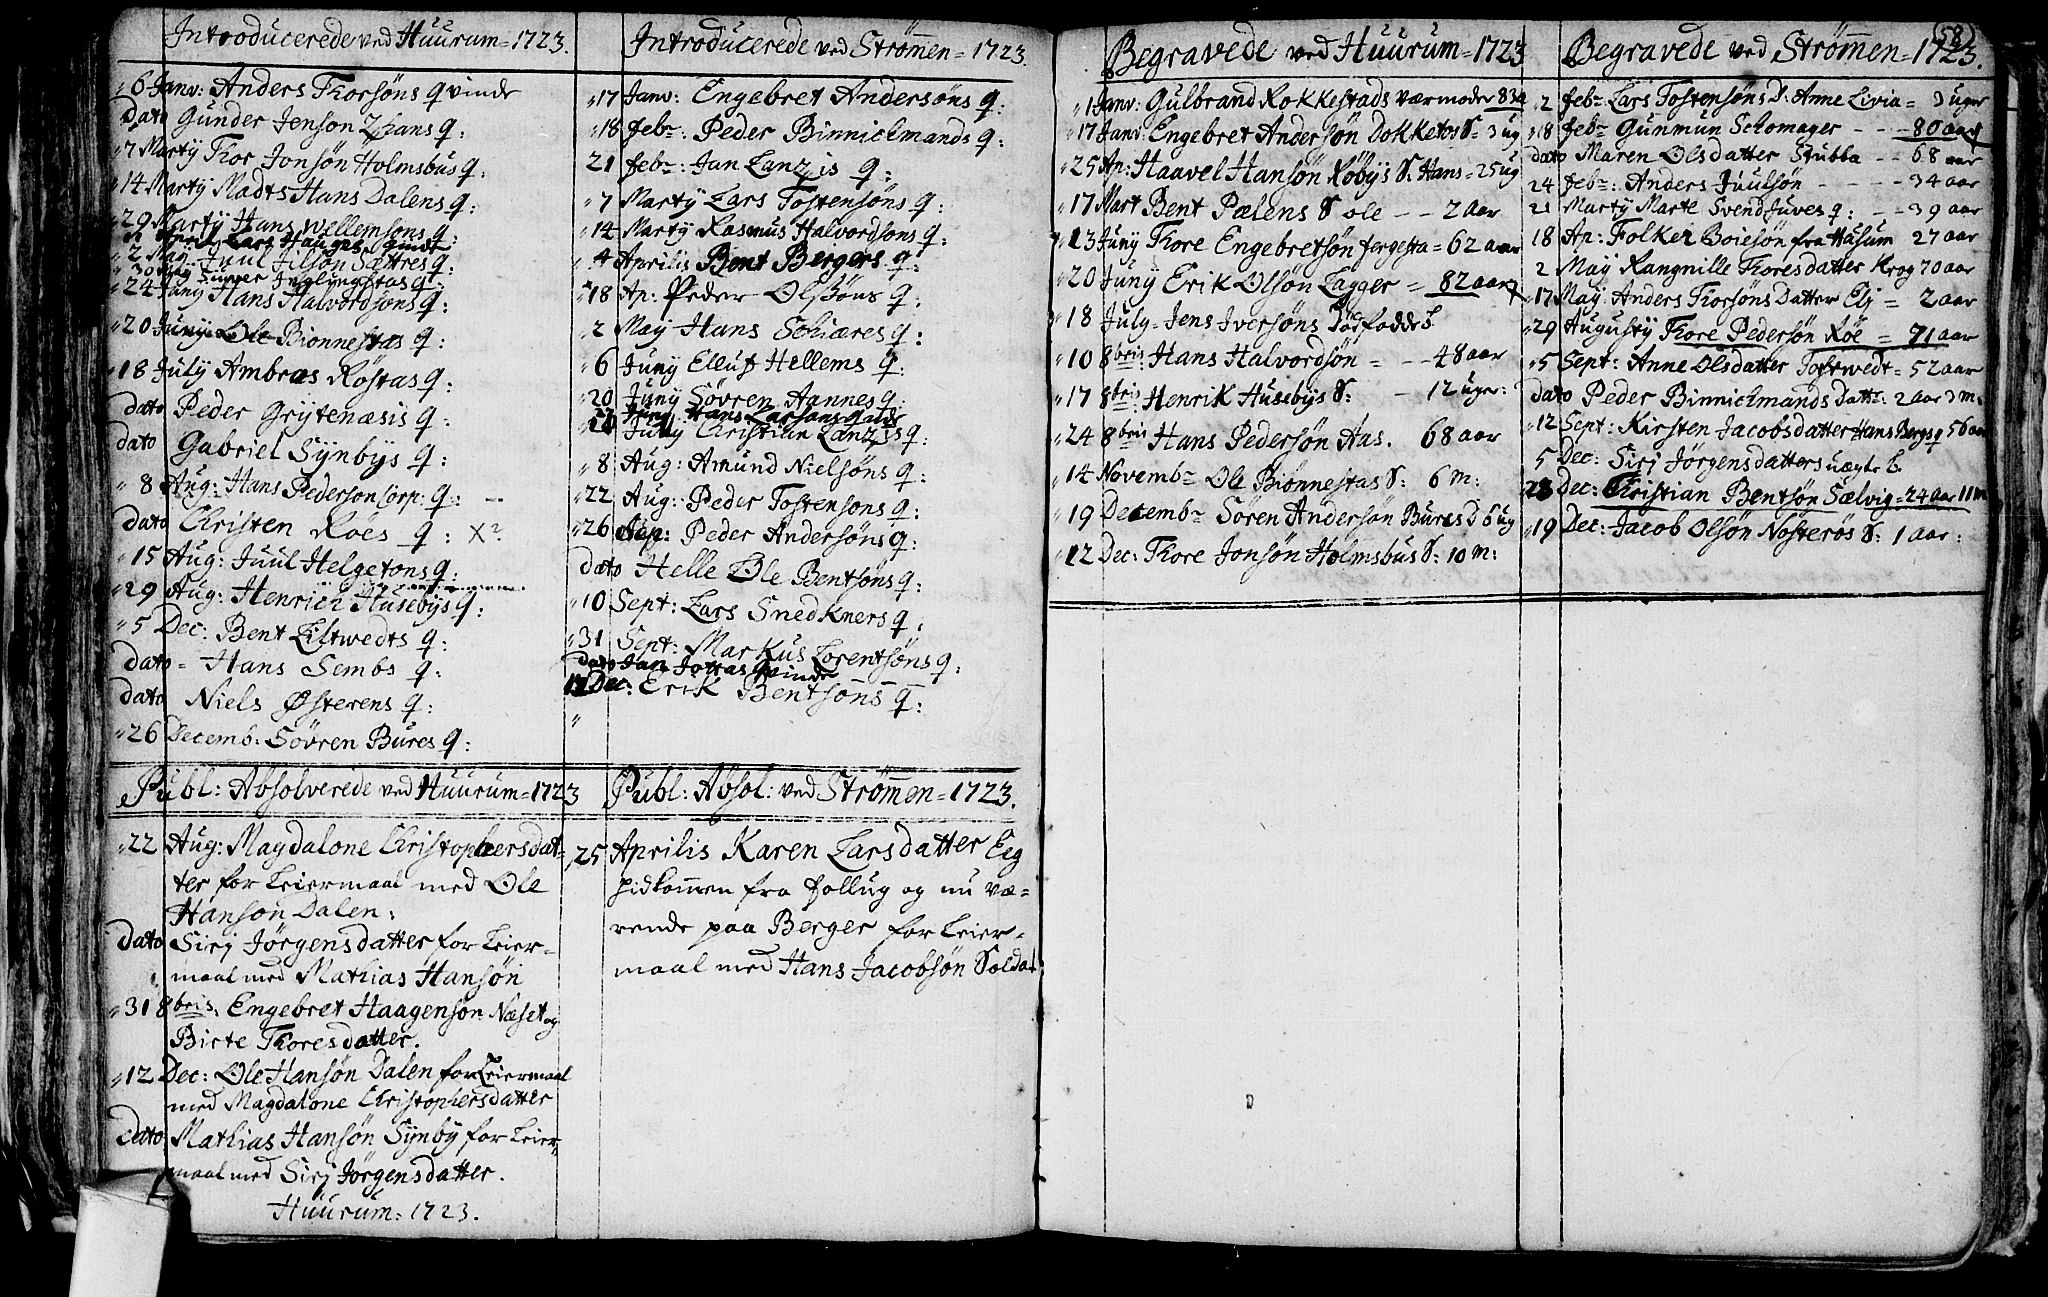 Introducerede ved Huurum = 1723.
6 Janv: Anders Thorsöns qvinde
Dato Gunder Jenson q:
7 Marty Thor Jonsön Holmsbus q:
14 Marty Madts Hans Dalens q:
29 Marty Hans Wellemsöns q:
Lars Hauges
2 May. Juul Jilsön Sættres q:
30 May
24 Juny Hans Halvordsöns q:
20 Juny Ole Bionnestas q:
18 July Ambras Röstas q:
dato Peder Grÿtenæsis q:
dato Gabriel Sÿnbÿs q:
8 Aug: Hans Pederson Corp: q:
dato Christen Röes q: X
15 Aug: Juul Helgetons q:
29 Aug: Henrich Husebÿs q:
5 Dec: Bent Liltwedts q:
dato = Hans Sembs q:
dato Niels Østerens q:
26 Decemb: Sövren Bures q:
Publ: Absolverede ved Huurum = 1723
22 Aug: Magdalone Christophersdat=
ter for Leiermaal med Ole
Hansön Dalen:
dato Sirj Jörgensdatter for Leier=
maal med Mathias Hansön
31 8bris: Engebret Haagensön Næset og
Birte Thoresdatter.
12 Dec: Ole Hansön Dalen for Leiermaal
med Magdalone Christophersdatter
dato Mathias Hansön Sÿnbÿ for Leier=
maal med Sirj Jörgensdatter.
Huurum: 1723.
Introducerede ved Strömen = 1723.
17 Janv: Engebret Andersöns q:
18 febr: Peder Binnickmands q:
21 febr: Jan Lanzis q:
7 Marty Lars Tostensöns q:
14 Marty Rasmus Halvordsons q:
4 Aprilis Bent Bergers q:
18 Ap: Peder Olssöns q:
2 Maÿ Hans Schiæres q:
6 Juny Elluf Hellems q:
20 Juny Sövren Aannes q:
Juny Hans Larsons
July Christian Lanzis q:
8 Aug: Amund Nielsöns q:
22 Aug: Peder Tostensons q:
26 Peder Andersöns q:
dato Helle Ole Bentsöns q:
10 Sept: Lars Snedkners q:
31 Sept: Markus Lorentsöns q:
dato Jan Jottas qvinde
Dec: Erik Bentsöns q:
Publ: Absol: ved Strömen = 1723.
25 Aprilis Karen Larsdatter Eeg
hidkommen fra follug og nu væ=
rende paa Berger for Leier=
maal med Hans Jacobsön Soldat
Begravede ved Huurum = 1723
1 Janv: Gulbrand Rokkestads værmoder 83 a
17 Janv: Engebret Andersön Dokketos S = 3 ug
25 Ap: Haavel Hansön Röbÿs S. Hans = 25 ug
17 Mart Bent Pælens S ole - - 2 Aar
13 Juny Thore Engebretsön fergesta = 62 aar
20 Juny Erik Olsön Lagger = 82 aar
18 July = Jens Iversöns b.
10 8bris: Hans Halvordsön = - - 48 aar
17 8bris: Henrik Husebÿs S: - 12 uger:
24 8bris Hans Pedersön Aas. 68 aar
14 Novembr Ole Bionnestas S: 6 m:
19 Decembr Sören Andersön Bures D 6 ug
12 Dec: Thore Jonsön Holmsbus S: 10 m:
58
Begravede ved Strömen = 1723.
2 febr Lars Tostensöns D: Anne Livia = 3 uger
18 febr Gunmun Schomager - - - 80 aar
dato Maren Olsdatter Stubba - - 68 aar
24 febr: Anders Juulsön - - - - 34 aar
21 Marty Marte Svendsuves q: - - 39 aar
18 Ap: Folker Boiesön fra Hasum 27 aar
2 Maÿ Rangnille Thoresdatter Krog 70 aar
17 Maÿ: Anders Thorsöns Datter Elj = 2 aar
29 Augusty Thore Pedersön Röe = 71 aar
5 Sept: Anne Olsdatter Toftwedt = 52 aar
dato Peder Binnickmands Dattr: 2 aar 3 m:
12 Sept: Kirsten Jacobsdatter Hans Bergs q 56 aar
5 Dec: Sirj Jörgensdatters uægte b.
23 Dec: Christian Bentsön Sælvig = 24 aar 11 m
19 Dec: Jacob Olsön Nösterös S: 1 aar: